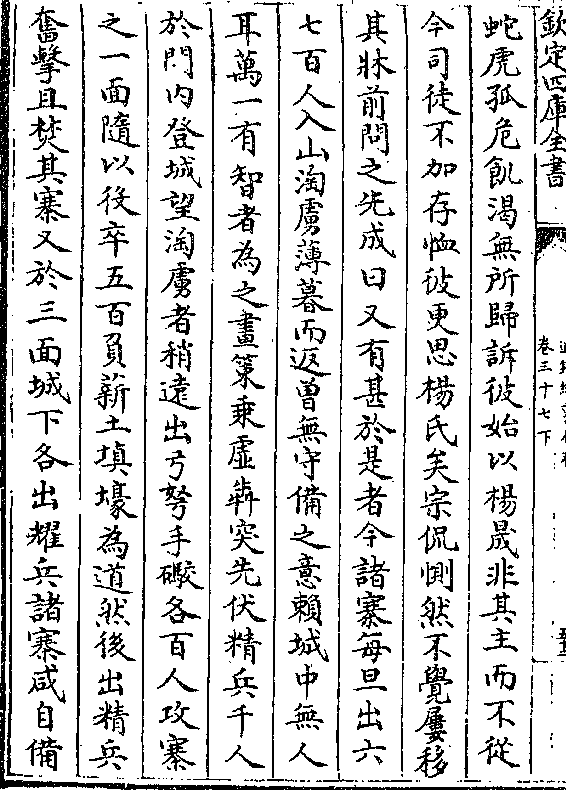 欽定四庫全書
卷三十七下
蛇虎孤危飢渴無所歸訴彼始以楊晟非其主而不從
今司徒不加存恤彼更思楊氏矣宗侃惻然不覺屢移
其牀前問之先成曰又有甚於是者今諸寨每旦出六
七百人入山淘虜薄暮而返曾無守備之意賴城中無人
耳萬一有智者為之畫策乗虛犇突先伏精兵千人
於門内登城望淘虜者稍遠出弓弩手礮各百人攻寨
之一面隨以後卒五百負薪土填壕為道然後出精兵
奮擊且焚其寨又於三面城下各出耀兵諸寨咸自備